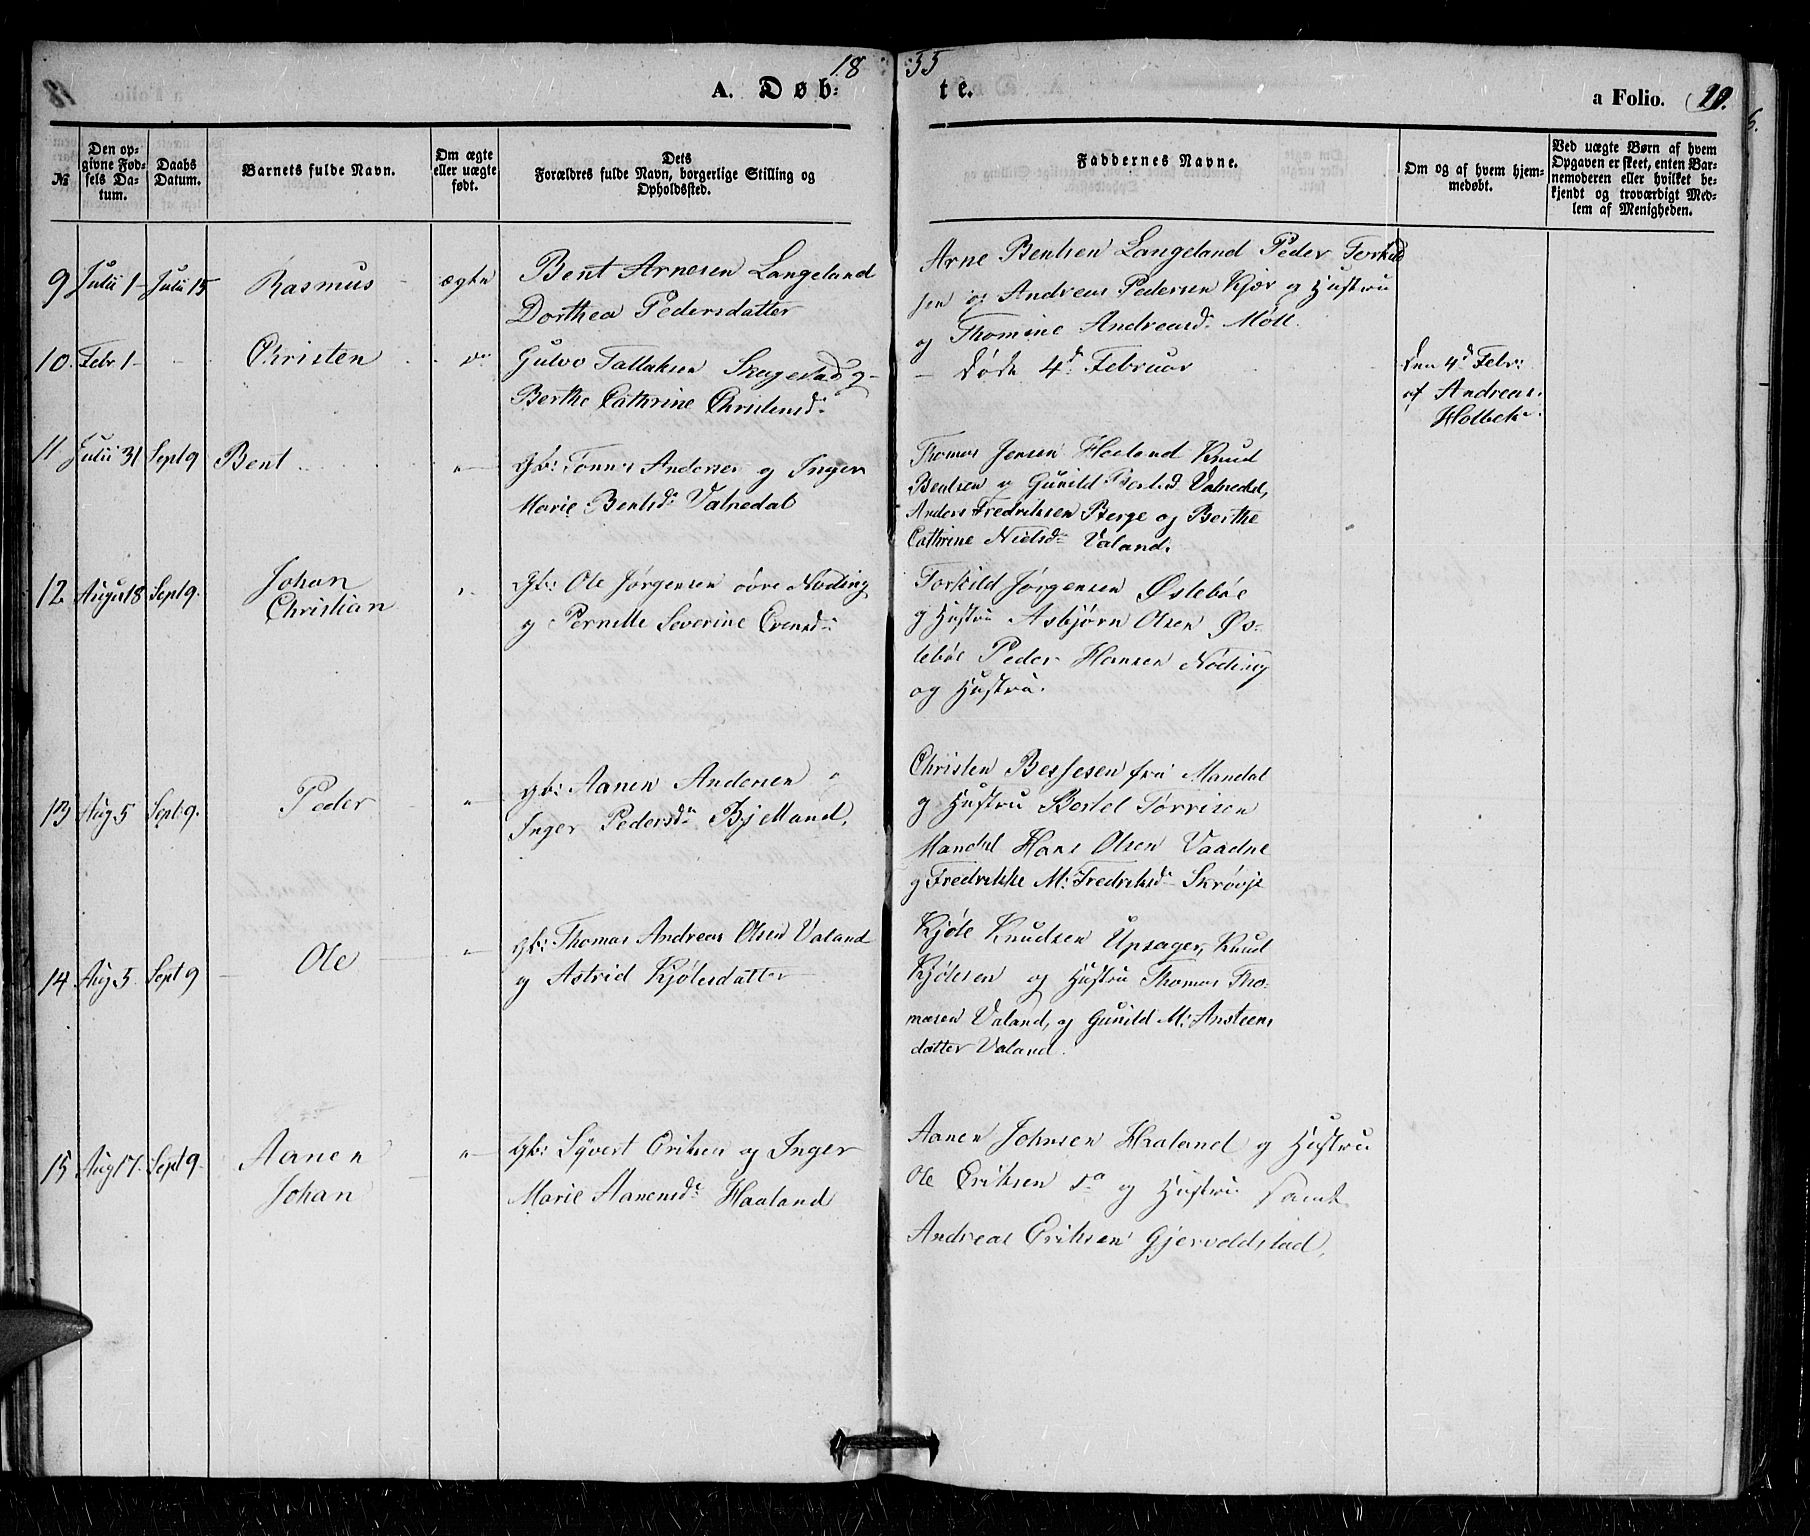 18 55
A. Døb: te.
a Folio. 19.
№
Den opgivne Fødsels Datum.
Daabs Datum.
Barnets fulde Navn.
Om ægte eller uægte født.
Dets Forældres fulde Navn, borgerlige Stilling og Opholdssted.
Faddernes Navne.
Om og af hvem hjemmedøbt.
Ved uægte Børn af hvem Opgaven er skeet, enten Barnemoderen eller hvilket bekjendt og troværdigt Medlem af Menigheden.
9 Julii 1 Julii 15 Rasmus ægte Bent Arnesen Langeland
Dorthea Pedersdatter
Arne Bentsen Langeland Peder Terkild
sen og Andreas Pedersen Kjær og Hustru
og Thomine Andreasd: Möll.
10. Febr 1 - Christen do Gulvo Tallaksen Skagestad og
Berthe Cathrine Christensd:
- døde 4d Februar
den 4d Febr:
af Andreas
Holbek.
11 Julii 31 Sept 9 Bent " Gb: Tønnes Andersen og Inger
Marie Bentsd: Valnedal
Thomas Jensen Haaland Knud
Bentsen og Gunild Valnedal,
Anders Fredriksen Berge og Berthe
Cathrine Nielsd: Valand.
12 August 8 Sept 9. Johan
Christian
Gb: Ole Jørgensen övre Nöding
og Pernille Severine Evensd:
Torkild Jørgensen Øslebøe
og Hustru Asbjørn Olsen Øs-
lebøe Peder Hansen Nöding
og Hustru.
13 Aug 5 Sept 9. Peder " Gb: Aanen Andersen
Inger Pedersd: Bjelland.
Christen Bessesen fra Mandal
og Hustru Bertel Tørrisen
Mandal Hans Olsen Vaadne
og Fredrikke M: Fredriksd: Skrøvje
14 Aug 5 Sept 9 Ole " Gb: Thomas Andreas Olsen Valand
og Astrid Kjølesdatter
Kjøle Knudsen Upsager, Knud
Kjølesen og Hustru Thomas Tho-
masen Valand, og Gunild M: Ansteens
datter Valand.
15 Aug 17. Sept 9. Aanen
Johan
" Gb: Syvert Eriksen og Inger
Marie Aanensd: Haaland
Aanen Johnsen Haaland og Hustru
Ole Eriksen do og Hustru samt
Andreas Eriksen Gjervoldstad.